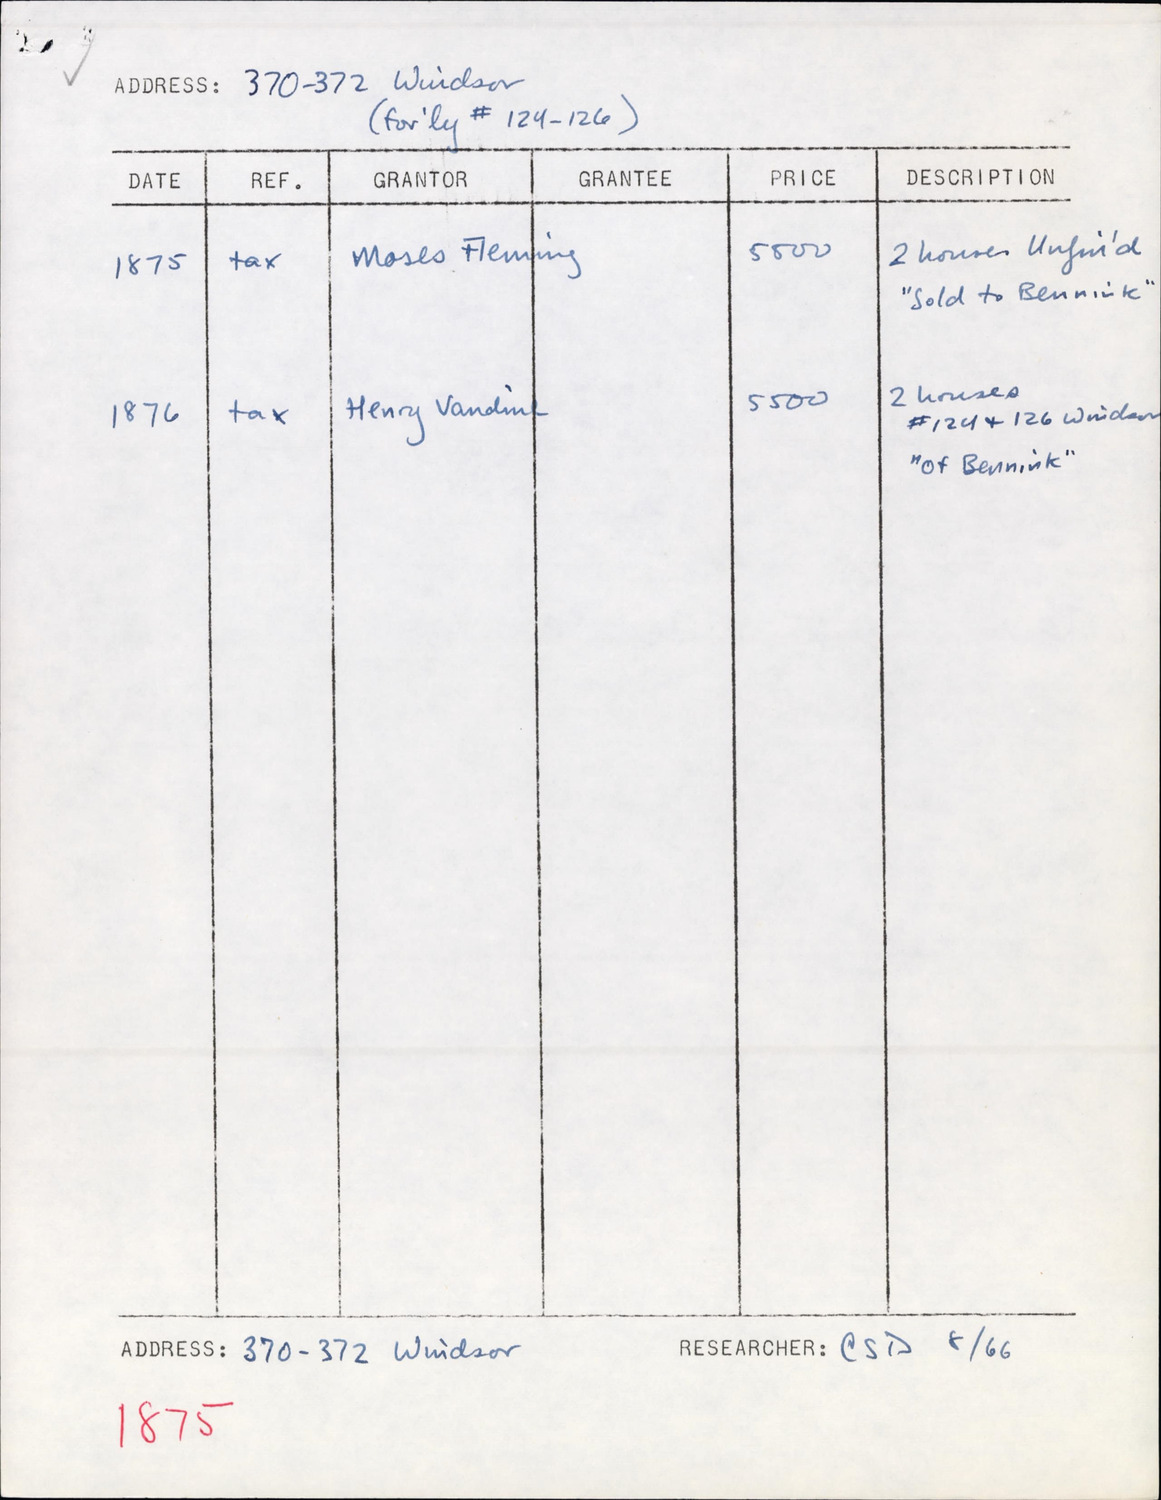 ADDRESS: 370-372 Windsor
(for'ly # 124-126)
DATE REF. GRANTOR GRANTEE PRICE DESCRIPTION
1875 tax Moses Fleming 5500 2 houses Unfin'd
"Sold to Bennink"
1876 tax Henry Vandine 5500 2 houses
#124 + 126 Windsor
"of Bennink"
ADDRESS: 370-372 Windsor RESEARCHER: CSD 8/66
1875